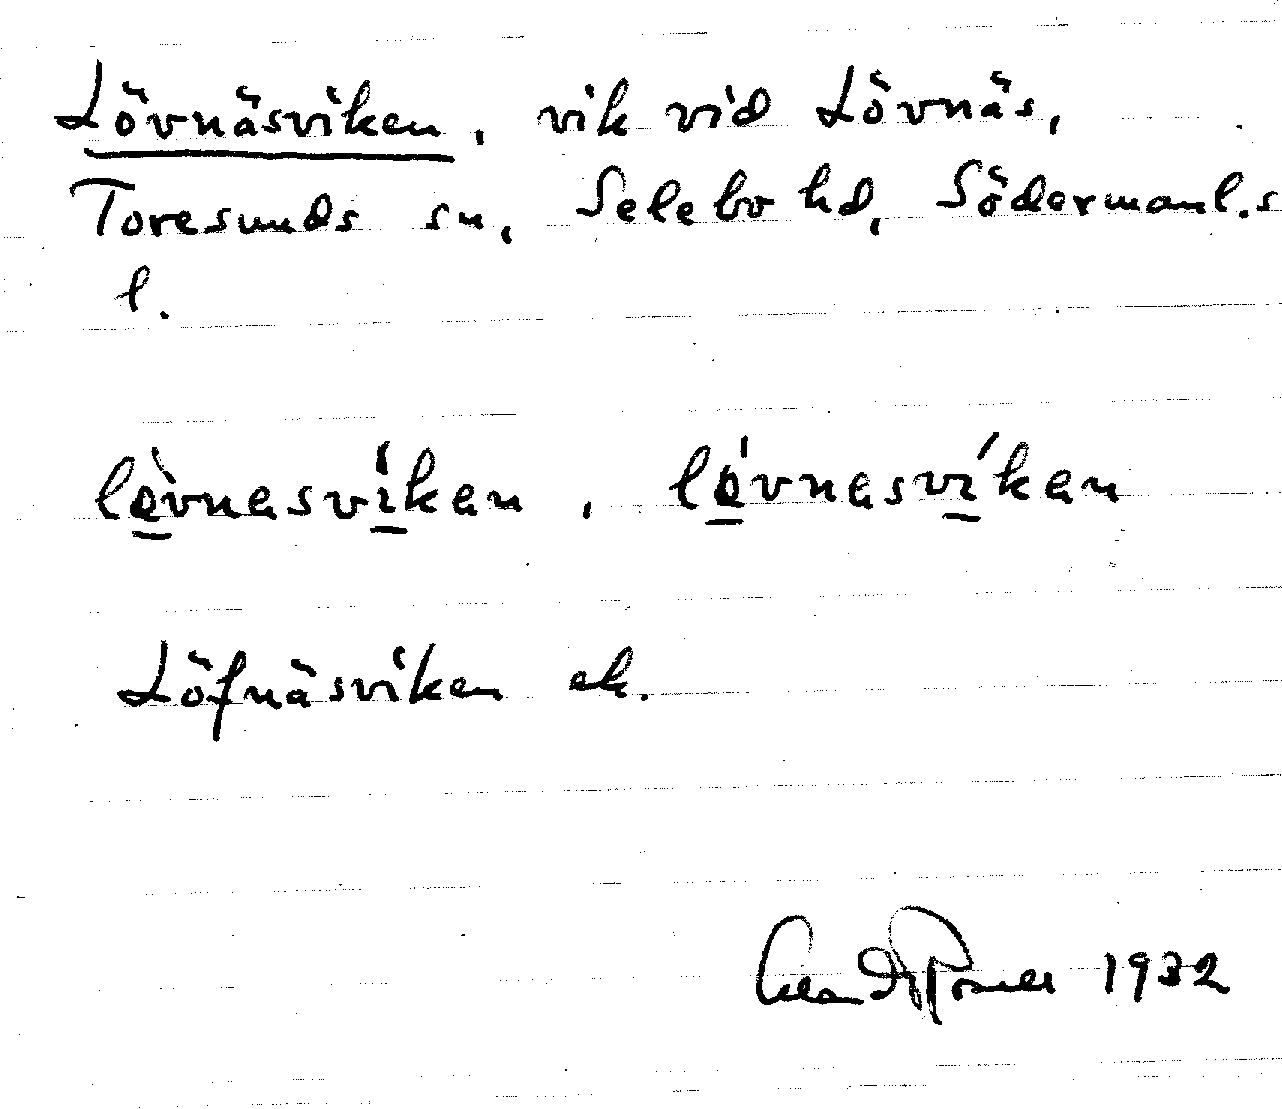 Lövnäsviken, vik vid Lövnäs,
Toresunds sn, Selebo hd, Södermanl.s
l.
lèvnasvíkan, lǿvnasvíkan
Löfnäsviken ek.
1932